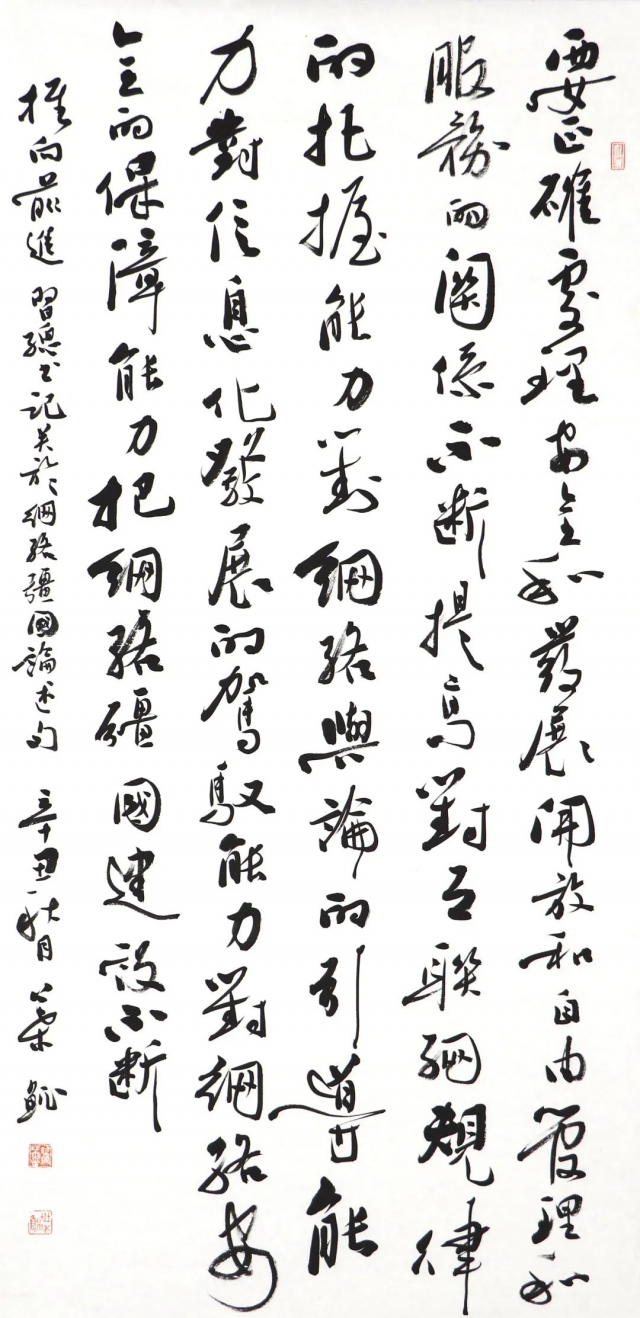 要正確處理安全和發展開放和自由管理和
服務的關係不斷提高對互聯網規律
的把握能力對網絡輿論的引導能
力對信息化發展的駕馭能力對網絡安
全的保障能力把網絡強國建設不斷
推向前進 習總书記关於網絡疆國論述句 辛丑秋月